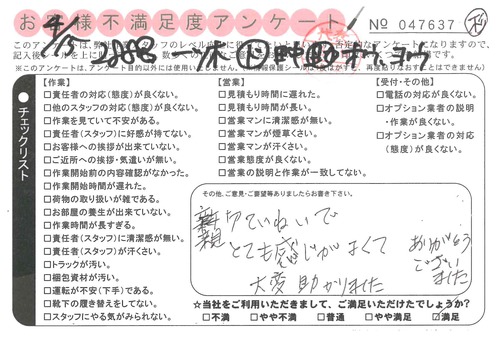 お客様不満足度アンケート
No 047637
4/3
【作業】
□責任者の対応(態度)が良くない。
□他のスタッフの対応(態度)が良くない。
□作業を見ていて不安がある。
□責任者(スタッフ)に好感が持てない。
□お客様への挨拶が出来ていない。
□ご近所への挨拶・気遣いが無い。
□作業開始前の内容確認がなかった。
□作業開始時間が遅れた。
□荷物の取り扱いが雑である。
□お部屋の養生が出来ていない。
□作業時間が長すぎる。
□責任者(スタッフ)に清潔感が無い。
□責任者(スタッフ)が汗くさい。
□トラックが汚い。
□梱包資材が汚い。
□運転が不安(下手)である。
□靴下の履き替えをしてない。
□スタッフにやる気がみられない。
【営業】
□見積もりに遅れた。
□見積もり時間が長い。
□営業マンに清潔感が無い。
□営業マンが煙草くさい。
□営業マンが汗くさい。
□営業態度が良くない。
□営業の説明と作業が一致してない。
【受付・その他】
□電話の対応が良くない。
□オプション業者の説明
・作業が良くない。
□オプション業者の対応
(態度)が良くない。
●チェックリスト
その他、ご意見・ご要望等ありましたらお書き下さい。
親切ていねいで
とても感じがよくて
大変助かりました
ありがとう
ござい
ました
☆当社をご利用いただきまして、ご満足いただけたでしょうか?
□不満 □やや不満 □普通 □やや満足 ☑満足